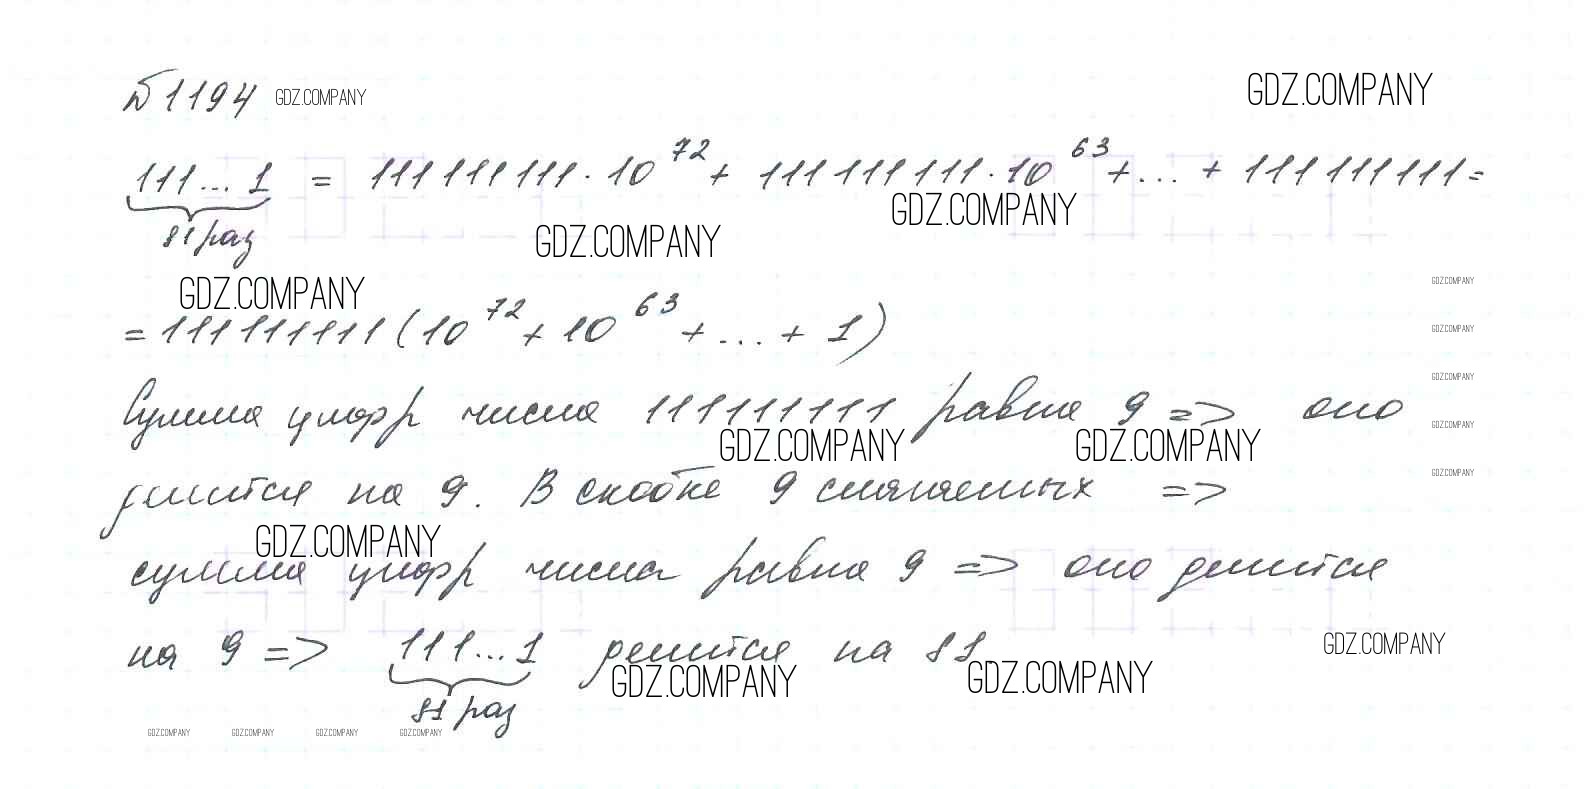 №1194 GDZ.COMPANY GDZ.COMPANY
111...1 = 111 111 111 · 10^72 + 111 111 111 · 10^63 + ... + 111 111 111 =
GDZ.COMPANY
81 раз GDZ.COMPANY
GDZ.COMPANY GDZ.COMPANY
= 111 111 111 (10^72 + 10^63 + ... + 1)
GDZ.COMPANY
GDZ.COMPANY
Сумма цифр числа 111111111 равна 9 => оно
GDZ.COMPANY GDZ.COMPANY GDZ.COMPANY
GDZ.COMPANY
делится на 9. В скобке 9 слагаемых =>
GDZ.COMPANY
сумма цифр числа равна 9 => оно делится
на 9 => 111...1 делится на 81 GDZ.COMPANY
GDZ.COMPANY GDZ.COMPANY
81 раз
GDZ.COMPANY GDZ.COMPANY GDZ.COMPANY GDZ.COMPANY